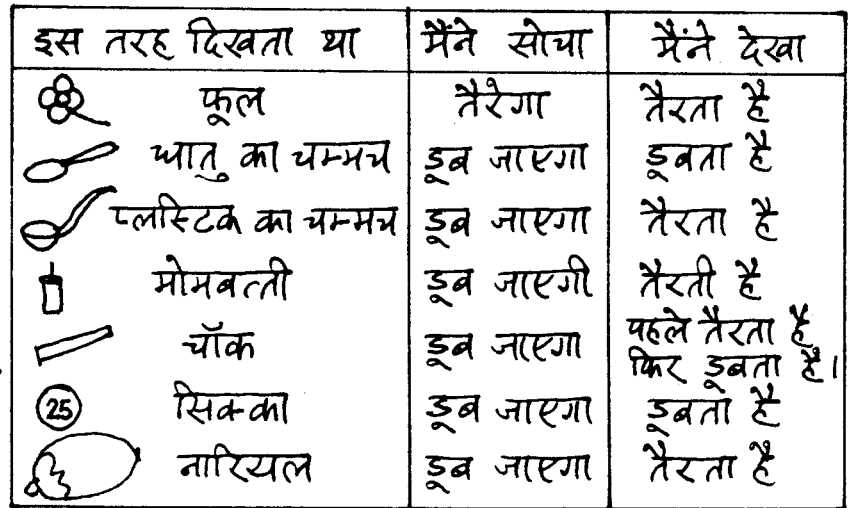 इस तरह दिखता था मैंने सोचा मैंने देखा
फूल तैरेगा तैरता है
धातु का चम्मच डूब जाएगा डूबता है
प्लास्टिक का चम्मच डूब जाएगा तैरता है
मोमबत्ती डूब जाएगी तैरती है
चॉक डूब जाएगा पहले तैरता है
फिर डूबता है।
25 सिक्का डूब जाएगा डूबता है
नारियल डूब जाएगा तैरता है